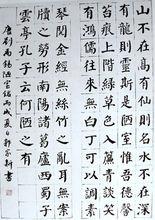 山不在高有仙則名水不在深
有龍則靈斯是陋室惟吾德馨
苔痕上階綠草色入簾青談笑
有鴻儒往來無白丁可以調素
琴閱金經無絲竹之亂耳無案
牘之勞形南陽諸葛廬西蜀子
雲亭孔子云何陋之有
唐劉禹錫陋室銘丙戌夏日郭新書